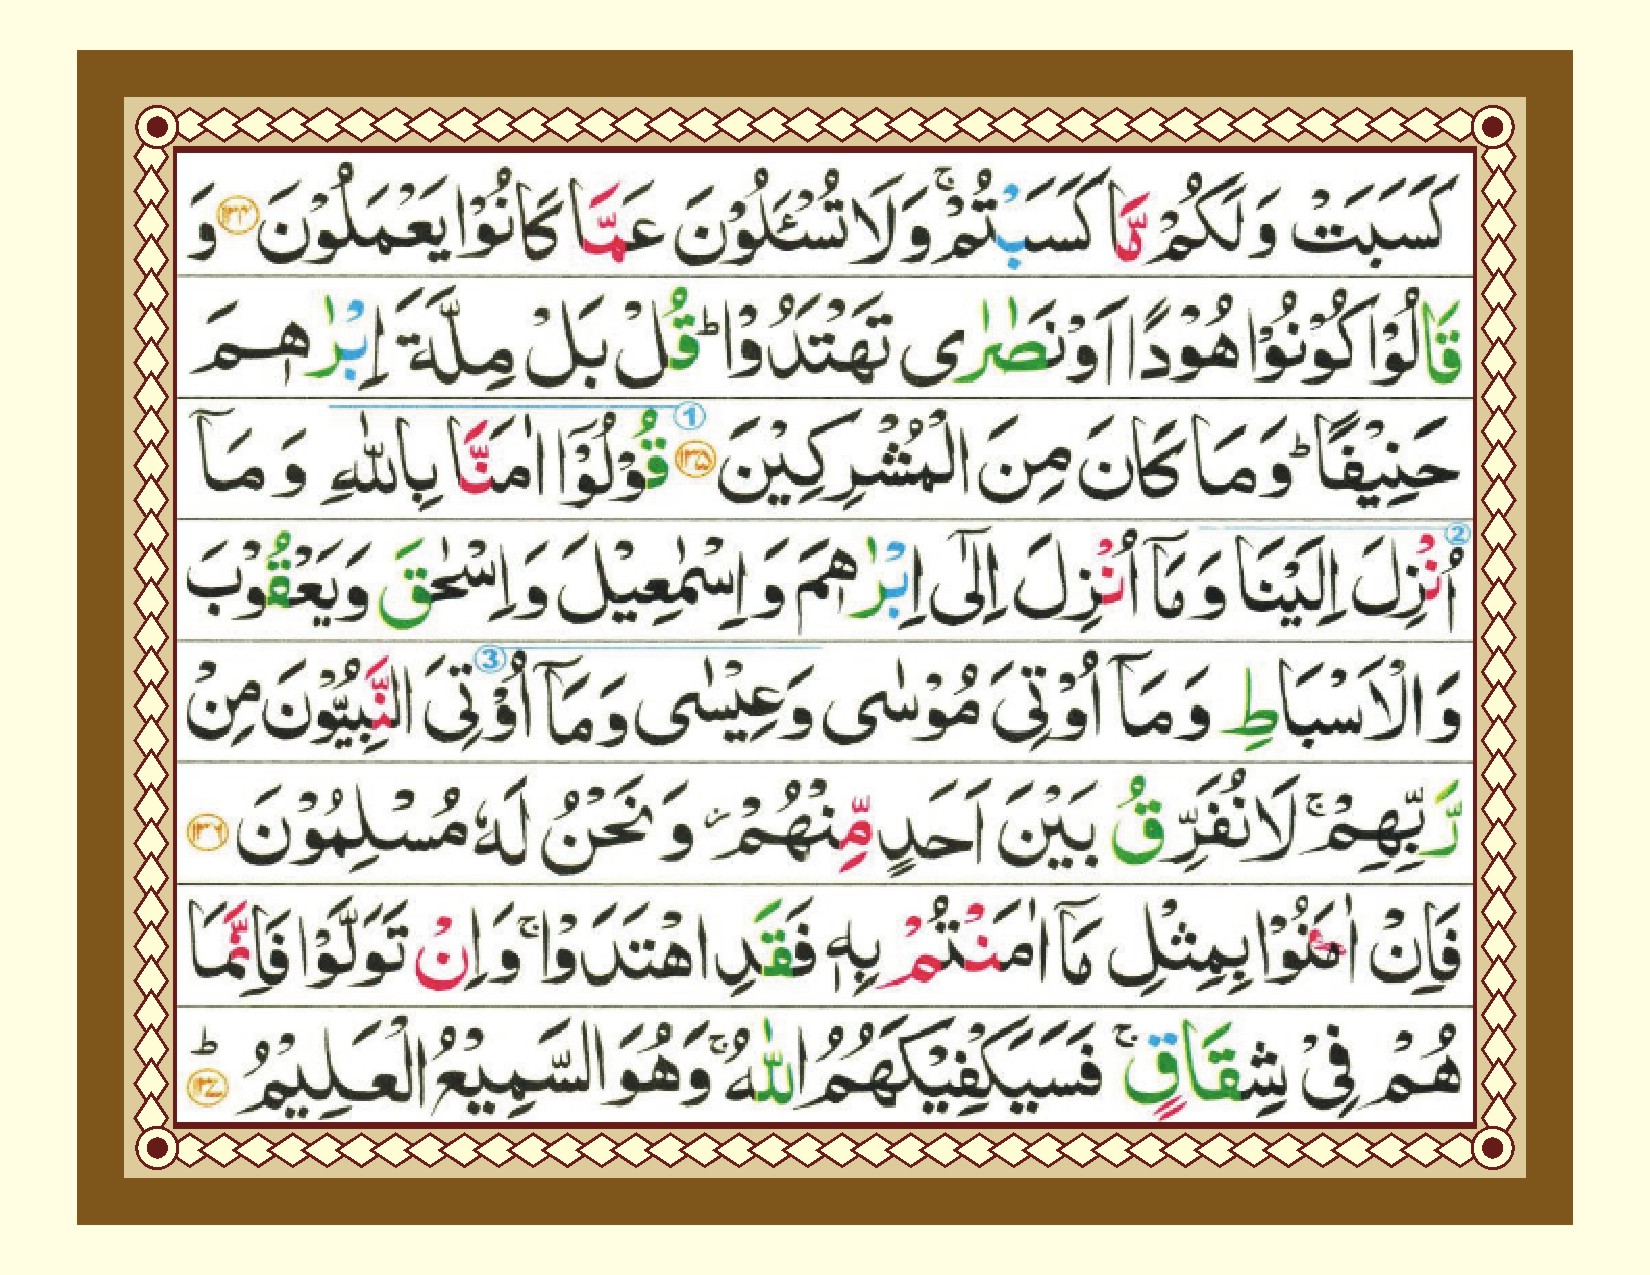 كَسَبَتْ وَلَكُمْ مَّا كَسَبْتُمْ ۚ وَلَا تُسْـَٔلُوْنَ عَمَّا كَانُوْا يَعْمَلُوْنَ ۝۱۳۴ وَ
قَالُوْا كُوْنُوْا هُوْدًا اَوْ نَصٰرٰى تَهْتَدُوْا ؕ قُلْ بَلْ مِلَّةَ اِبْرٰهٖمَ
حَنِيْفًا ؕ وَمَا كَانَ مِنَ الْمُشْرِكِيْنَ ۝۱۳۵ ① قُوْلُوْٓا اٰمَنَّا بِاللّٰهِ وَمَآ
② اُنْزِلَ اِلَيْنَا وَمَآ اُنْزِلَ اِلٰٓى اِبْرٰهٖمَ وَاِسْمٰعِيْلَ وَاِسْحٰقَ وَيَعْقُوْبَ
وَالْاَسْبَاطِ وَمَآ اُوْتِيَ مُوْسٰى وَعِيْسٰى وَمَآ ③ اُوْتِيَ النَّبِيُّوْنَ مِنْ
رَّبِّهِمْ ۚ لَا نُفَرِّقُ بَيْنَ اَحَدٍ مِّنْهُمْ ؗ وَنَحْنُ لَهٗ مُسْلِمُوْنَ ۝۱۳۶
فَاِنْ اٰمَنُوْا بِمِثْلِ مَآ اٰمَنْتُمْ بِهٖ فَقَدِ اهْتَدَوْا ۚ وَاِنْ تَوَلَّوْا فَاِنَّمَا
هُمْ فِيْ شِقَاقٍ ۚ فَسَيَكْفِيْكَهُمُ اللّٰهُ ۚ وَهُوَ السَّمِيْعُ الْعَلِيْمُ ؕ ۝۱۳۷